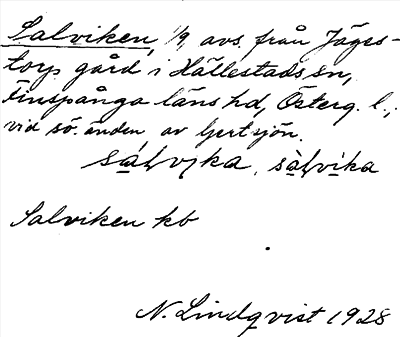 Salviken, 1/9, avs. från Jäges-
torp gård i Hällestads sn,
Finspånga läns hd, Österg. l.;
vid sö. änden av Gertsjön.
sàlvika, sàlvika
Salviken kb
N. Lindqvist 1928